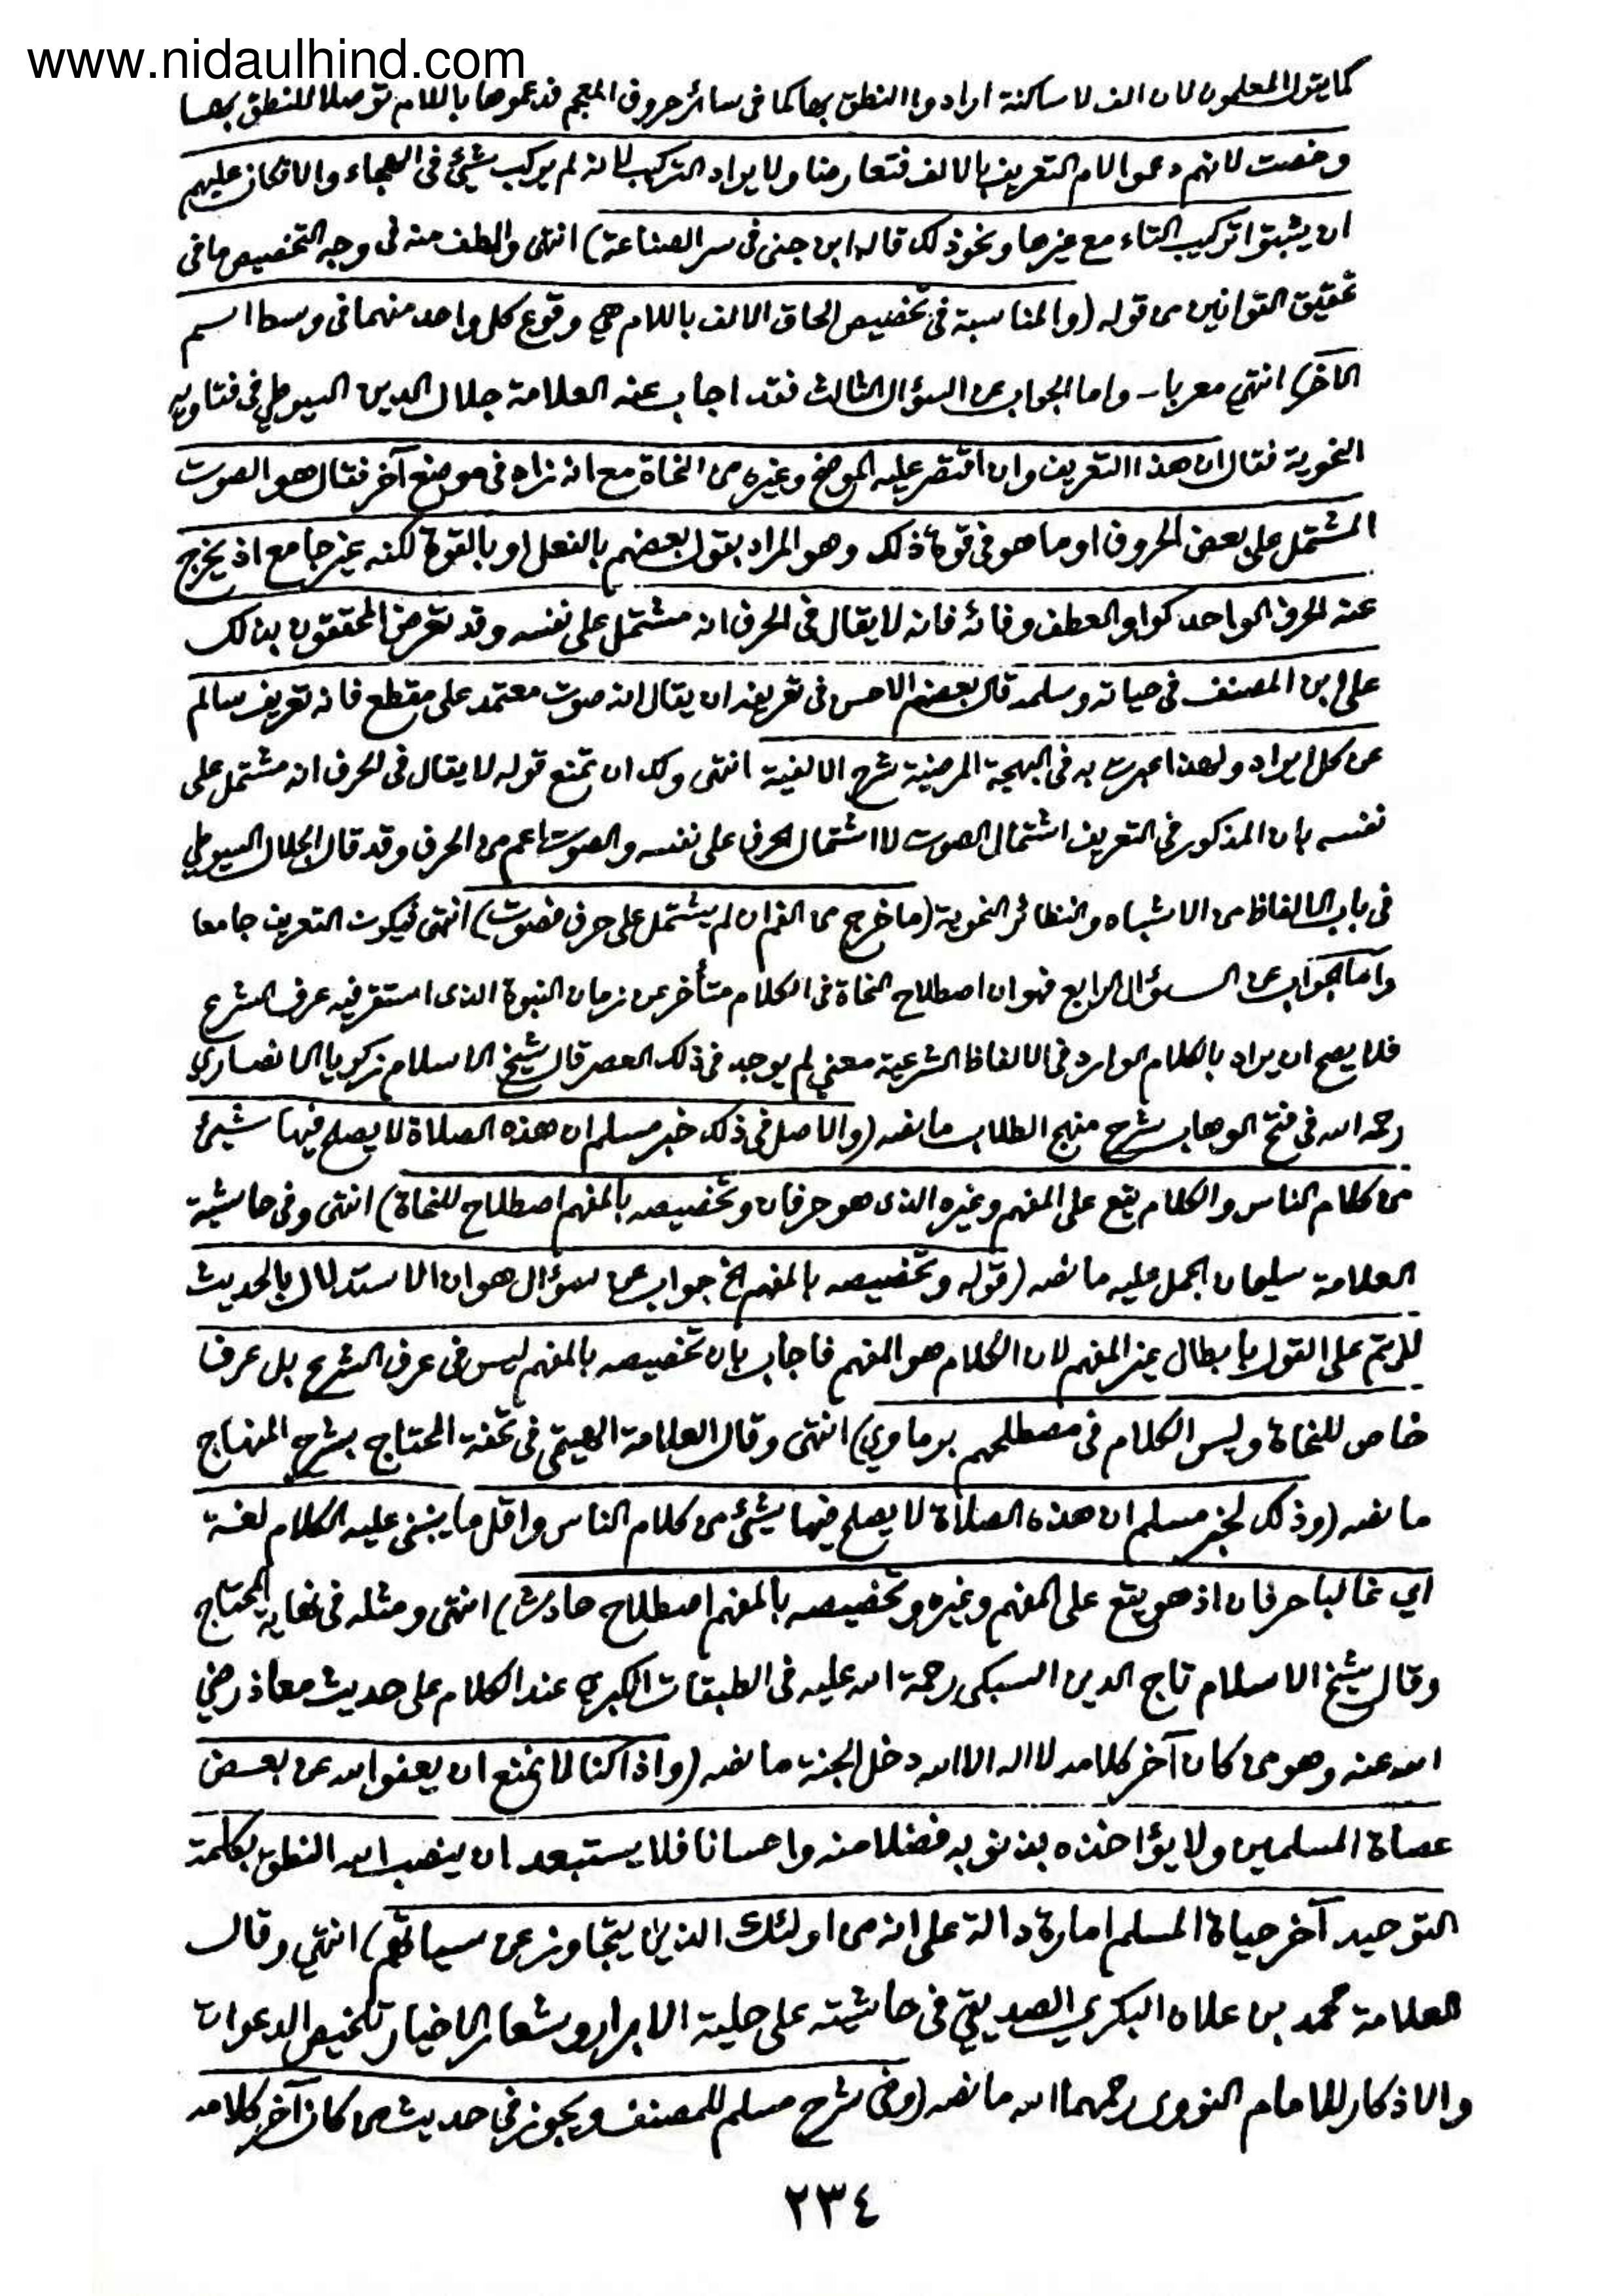 www.nidaulhind.com
كما يقول المعلمون لان الف لا ساكنة ارادوا النطق بها كما في سائر حروف المعجم فدعموها باللام توصلا للنطق بها
وخصت لانهم دعموا لام التعريف بالالف فتعارضا ولا يراد التركيب لانه لم يركب شيئ في الهجاء والا لكان عليهم
ان يثبتوا تركيب التاء مع غيرها ونحو ذلك قاله ابن جني في سر الصناعة) انتهى والطف منه في وجه التخصيص ما في
تحقيق القوانين من قوله (والمناسبة في تخصيص الحاق الالف باللام هي وقوع كل واحد منهما في وسط اسم
الآخر) انتهي معربا - واما الجواب عن السؤال الثالث فقد اجاب عنه العلامة جلال الدين السيوطي في فتاويه
النحوية فقال ان هذا التعريف وان اقتصر عليه الموضح وغيره من النحاة مع انه زاد في موضع آخر فقال هو الصوت
المشتمل على بعض الحروف او ما هو في قوة ذلك وهو المراد بقول بعضهم بالفعل او بالقوة لكنه غير جامع اذ يخرج
عنه الحرف الواحد كواو العطف وفائه فانه لا يقال في الحرف انه مشتمل على نفسه وقد تعرض المحققون بذلك
على ابن المصنف في حياته وسلمه قال بعضهم الاحسن في تعريفه ان يقال انه صوت معتمد على مقطع فانه تعريف سالم
عن كل ايراد ولهذا عبرت به في البهجة المرضية شرح الالفية انتهى ولك ان تمنع قوله لا يقال في الحرف انه مشتمل على
نفسه بان المذكور في التعريف اشتمال الصوت لا اشتمال الحرف على نفسه والصوت اعم من الحرف وقد قال الجلال السيوطي
في باب الالفاظ من الاشباه والنظائر النحوية (ما خرج من الفم ان لم يشتمل على حرف فصوت) انتهى فيكون التعريف جامعا
واما الجواب عن السؤال الرابع فهو ان اصطلاح النحاة في الكلام متأخر عن زمان النبوة الذى استقر فيه عرف الشرع
فلا يصح ان يراد بالكلام الوارد في الالفاظ الشرعية معني لم يوجد في ذلك العصر قال شيخ الاسلام زكريا الانصاري
رحمه الله في فتح الوهاب بشرح منهج الطلاب ما نصه (والاصل في ذلك خبر مسلم ان هذه الصلاة لا يصلح فيها شيئ
من كلام الناس والكلام يقع على المفهم وغيره الذى هو حرفان وتخصيصه بالمفهم اصطلاح للنحاة) انتهى وفي حاشية
العلامة سليمان الجمل عليه ما نصه (قوله وتخصيصه بالمفهم الخ جواب عن سؤال هو ان الاستدلال بالحديث
لا يتم على القول بابطال غير المفهم لان الكلام هو المفهم فاجاب بان تخصيصه بالمفهم ليس في عرف الشرع بل عرف
خاص للنحاة وليس الكلام في مصطلحهم برماوي) انتهى وقال العلامة الهيتمي في تحفة المحتاج بشرح المنهاج
ما نصه (وذلك لخبر مسلم ان هذه الصلاة لا يصلح فيها شيئ من كلام الناس واقل ما يبنى عليه الكلام لغة
اي غالبا حرفان اذ هو يقع على المفهم وغيره وتخصيصه بالمفهم اصطلاح حادث) انتهى ومثله في نهاية المحتاج
وقال شيخ الاسلام تاج الدين السبكى رحمة الله عليه في الطبقات الكبرى عند الكلام على حديث معاذ رضي
الله عنه وهو من كان آخر كلامه لا اله الا الله دخل الجنة ما نصه (واذا كنا لا نمنع ان يعفو الله عن بعض
عصاة المسلمين ولا يؤاخذه بذنوبه فضلا منه واحسانا فلا يستبعد ان ينصب الله النطق بكلمة
التوحيد آخر حياة المسلم امارة دالة على انه من اولئك الذين يتجاوز عن سيئاتهم) انتهي وقال
العلامة محمد بن علان البكري الصديقي في حاشيته على حلية الابرار وشعار الاخيار تلخيص الدعوات
والاذكار للامام النووى رحمهما الله ما نصه (وفي شرح مسلم للمصنف ويجوز في حديث من كان آخر كلامه
٢٣٤